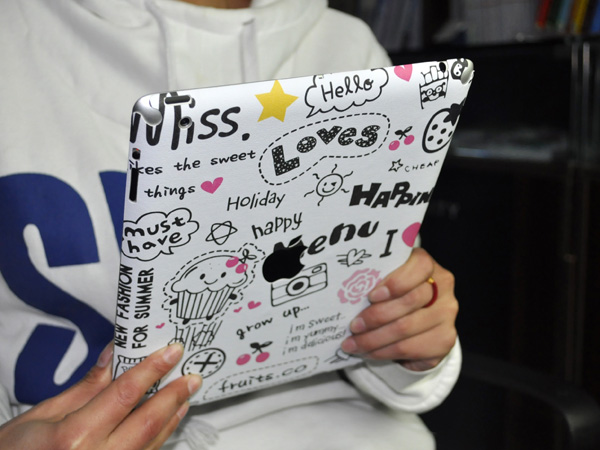 Miss.
Hello
Loves
likes the sweet
things
CHEAP
Holiday
HAPPIN
must
have
happy
Menu
I
NEW FASHION
FOR SUMMER
grow up...
i'm sweet
i'm yummy
i'm delicious
fruits.co